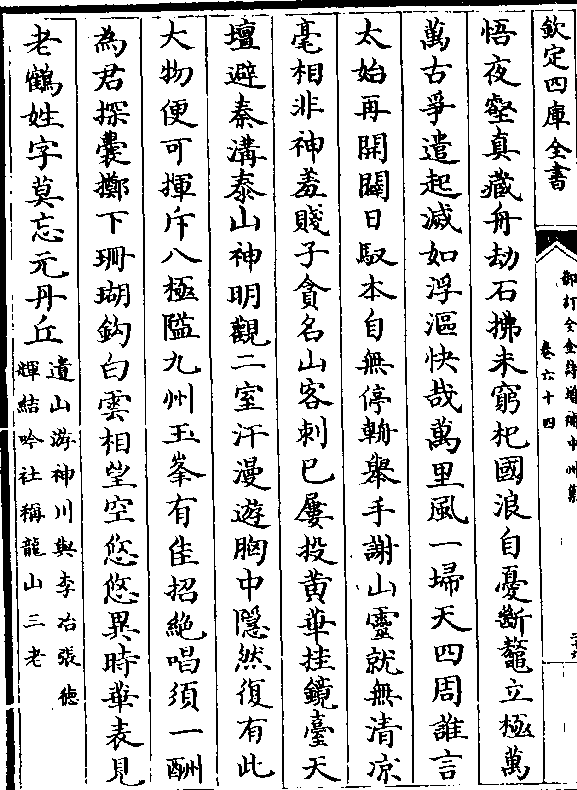 欽定四庫全書
御訂全金詩增補中州集
卷六十四
悟夜壑真藏舟劫石拂未窮杞國浪自憂斷鼇立極萬
萬古爭遣起滅如浮漚快哉萬里風一埽天四周誰言
太始再開闢日馭本自無停輈舉手謝山靈就無清凉
毫相非神羞賤子貪名山客刺已屢投黃華挂鏡臺天
壇避秦溝泰山神明觀二室汗漫遊胸中隱然復有此
大物便可揮斥八極隘九州玉峯有佳招絶唱須一酬
為君探囊擲下珊瑚鈎白雲相望空悠悠異時華表見
老鶴姓字莫忘元丹丘
遺山游神川與李冶張德
輝結吟社稱龍山三老